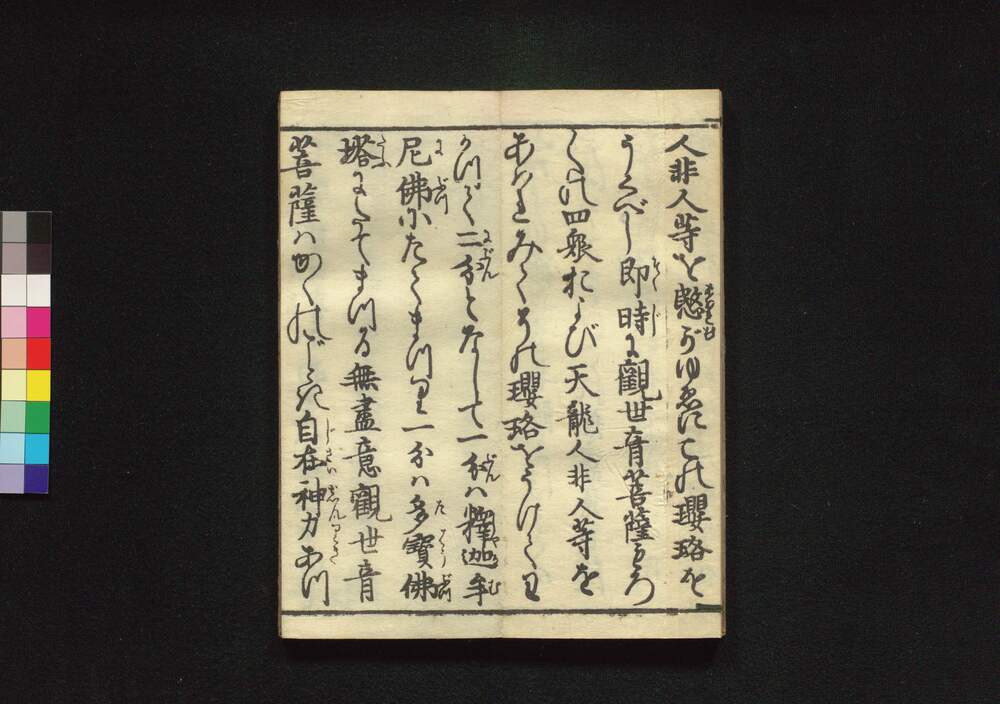 人非人等を愍がゆゑにこの瓔珞を
うくべし即時に觀世音菩薩もろ
〳〵の四衆および天龍人非人等を
あはれみてその瓔珞をうけて
二分となして一分は釋迦牟
尼佛にたてまつり一分は多寶佛
塔にたてまつる無盡意觀世音
菩薩はかくのごとき自在神力あつ